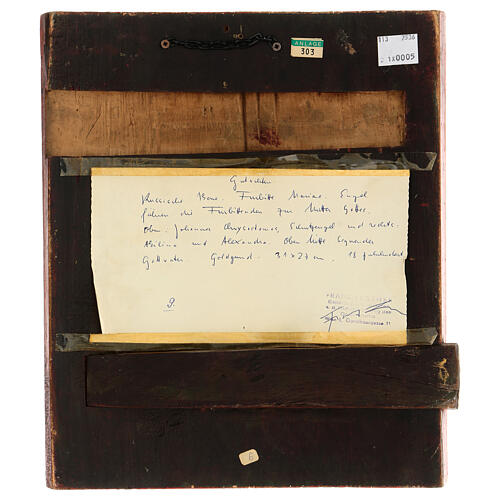 ANLAGE
303
113 2936
1x0005
Gutachten
Russische Ikone. Fürbitte Mariae. Engel
führen die Fürbittenden zur Mutter Gottes.
Oben: Johannes Chrysostomus, Schutzengel und rechts:
und Alexandra. Oben Mitte Segnender
Gottvater. Goldgrund. 31x27 cm. 18 Jahrhundert
9.
6